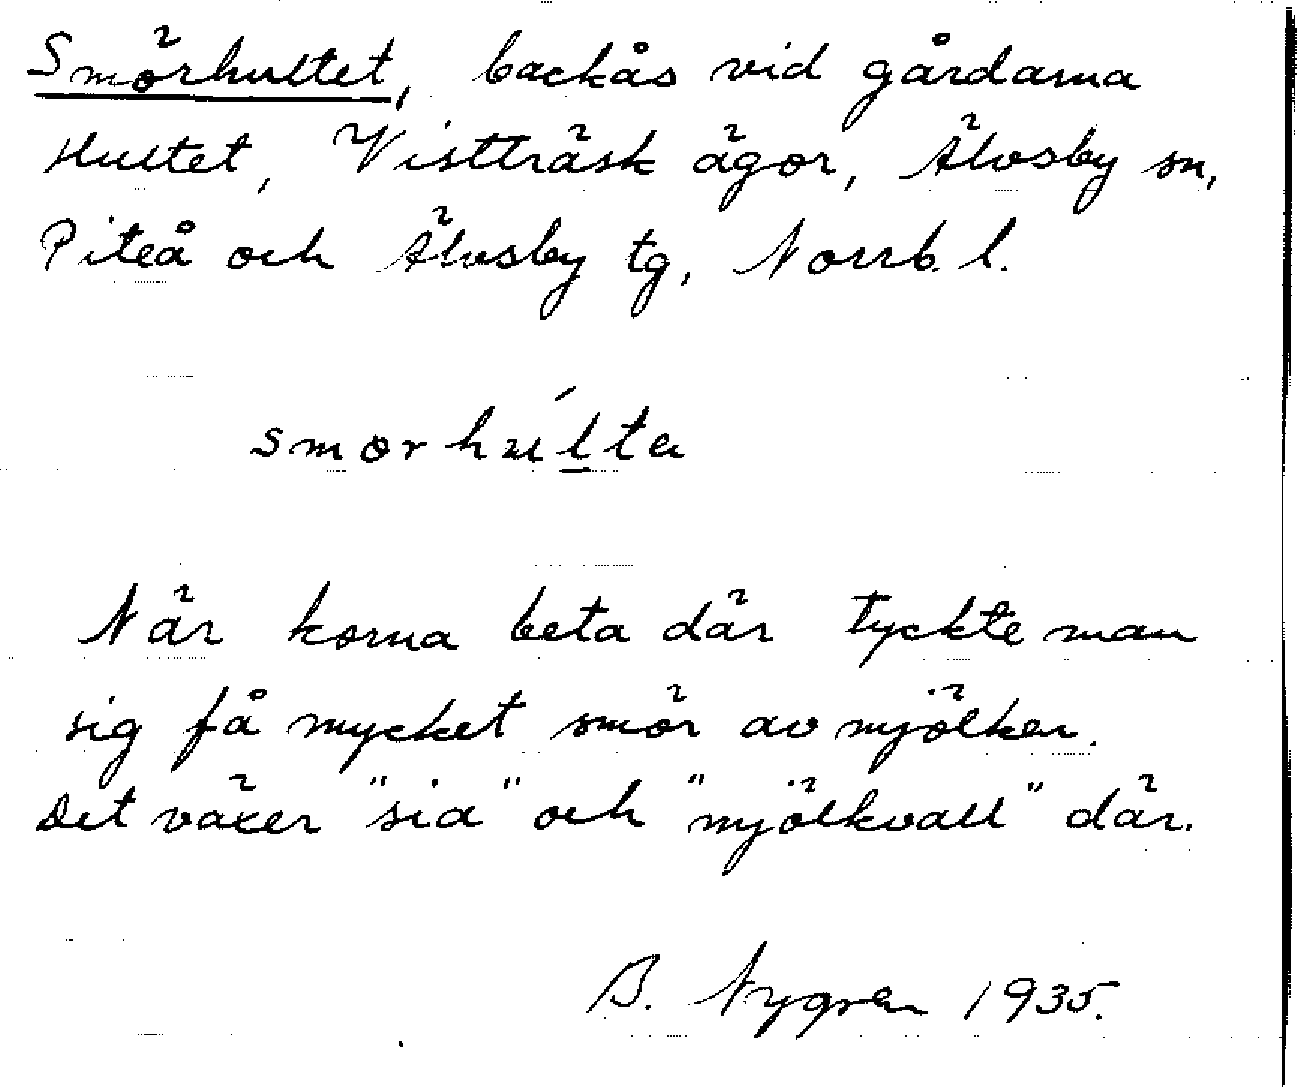 Smörhultet, backås vid gårdarna
Hultet, Vistträsk ägor, Älvsby sn,
Piteå och Älvsby tg, Norrb. l.
smorhúlta
När korna beta där tyckte man
sig få mycket smör av mjölken.
Det växer "sia" och "mjölkvall" där.
B. Nygren 1935.